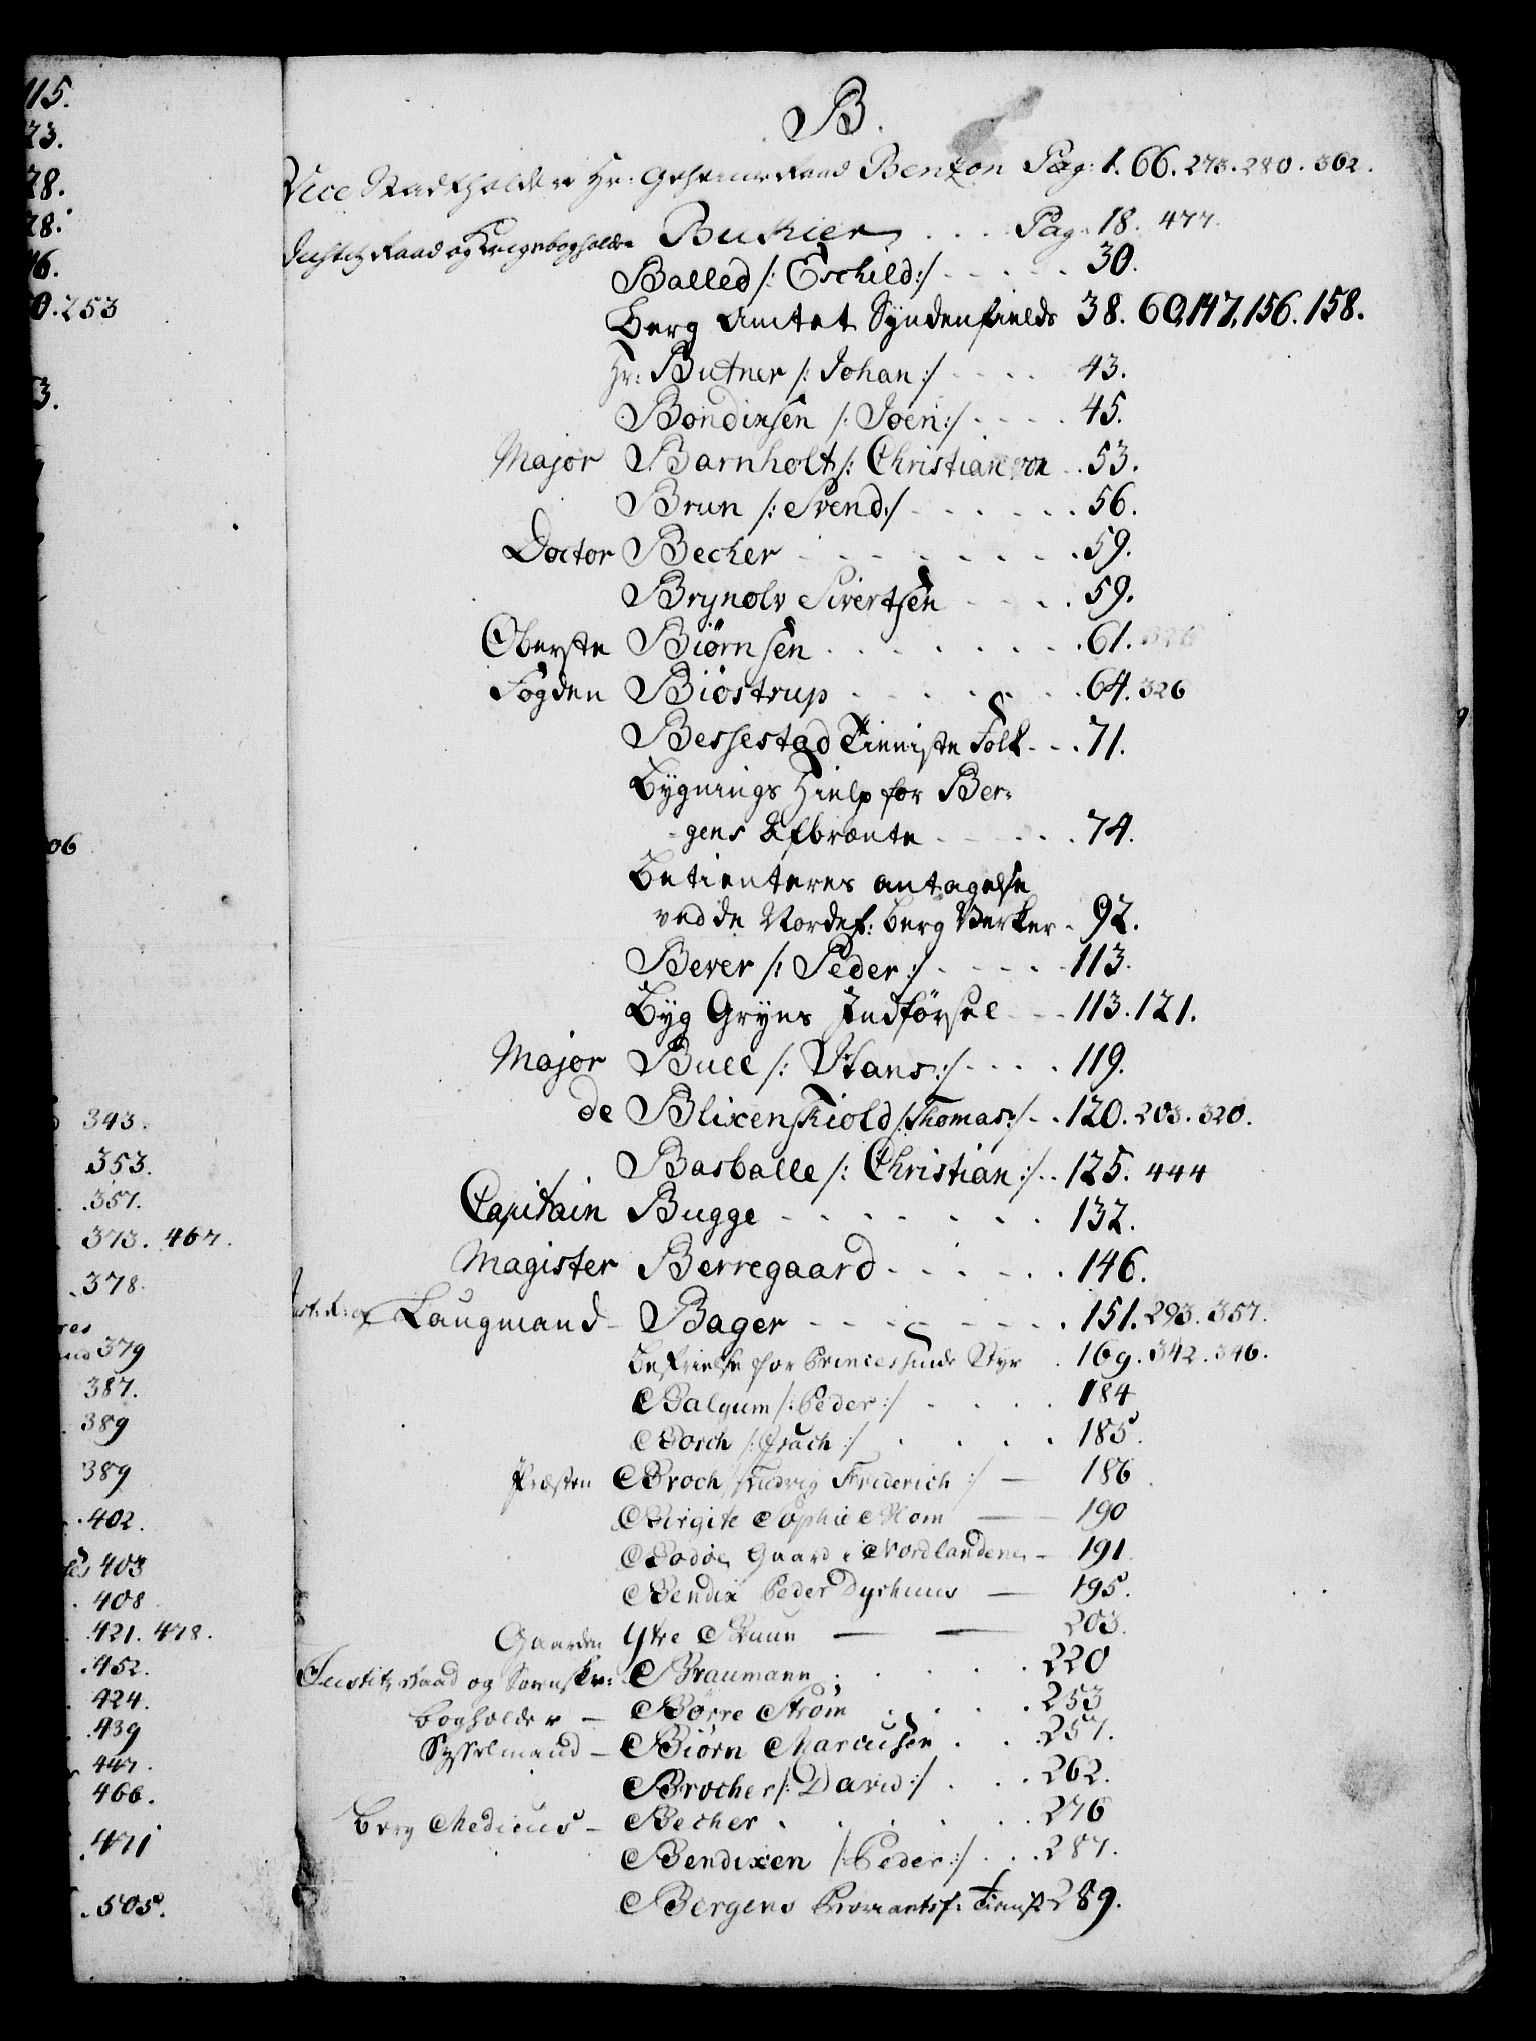 115.
73.
78.
78.
46.
0.253
3.
06
343.
353.
357.
373. 467.
378.
379
387.
389
389
402.
403
408
421. 478.
452.
424.
439
447.
466.
471
505.
B.
Vice Stadtholder Hr: Geheime Raad Benzon Pag: 1. 66. 273. 280. 302.
Justitz Raad og Krigsbogholder Bukier . . . Pag. 18. 477.
Balled /: Eschild:/ - - - - - 30.
Berg Amtet Syndenfields 38. 60. 147. 156. 158.
Hr: Butner /: Johan:/ - - - - 43.
Bondinsen /: Joen:/ - - - - 45.
Major Barnholt /: Christian von . . 53.
Brun /: Svend:/ - - - - - - 56.
Doctor Becher - - - - - - - 59.
Brynolv Sivertsen - - - . 59.
Oberste Biørnsen . . . . . . . . 61.
Fogden Biostrup - - - - - - 64. 326
Bessestad Tienniste Folk - - . 71.
Bygnings Hielp for Ber=
=gens Afbrænte - - - - - 74.
Betienteres antagelse
ved de Nordef: Berg Verker - 92.
Bever /: Peder:/ - - - - - 113.
Byg Gryns Indførsel - - - 113. 121.
Major Bull /: Hans:/ - - - - 119.
de Blixenskiold /:Thomas:/ - - 120. 203. 320.
Basballe /: Christian:/ . . 125. 444
Capitain Bugge - - - - - - - 132.
Magister Berregaard - - - - - 146.
Just: R: og Laugmand - Bager - - - - - - - 151. 293. 357.
Befrielse for Princessinde Styr . 169. 342. 346.
Balgum /: Peder:/ . . . . 184
Borch /: Isach:/ . . . . 185.
Præsten Broch /: Ludvig Friderich:/ — 186
Birgite Sophie Hom — 190
Bodøe Gaard i Nordlandene - 191
Bendix Peder Dyrhuus — 195.
Gaarden Ytre Bruun — — 203.
Justitz Raad og Sorenskr: Braumann . . . . . . 220
Bogholder — Børre Strøm . . . . 253
Sysselmand — Biørn Marcusen . . . 257.
Brocher /: David:/ . . . 262.
Berg Medicus — Becher . . . . . . 276
Bendixen /: Peder:/ . . . 287.
Bergens Proviantsf: Tienst 289.